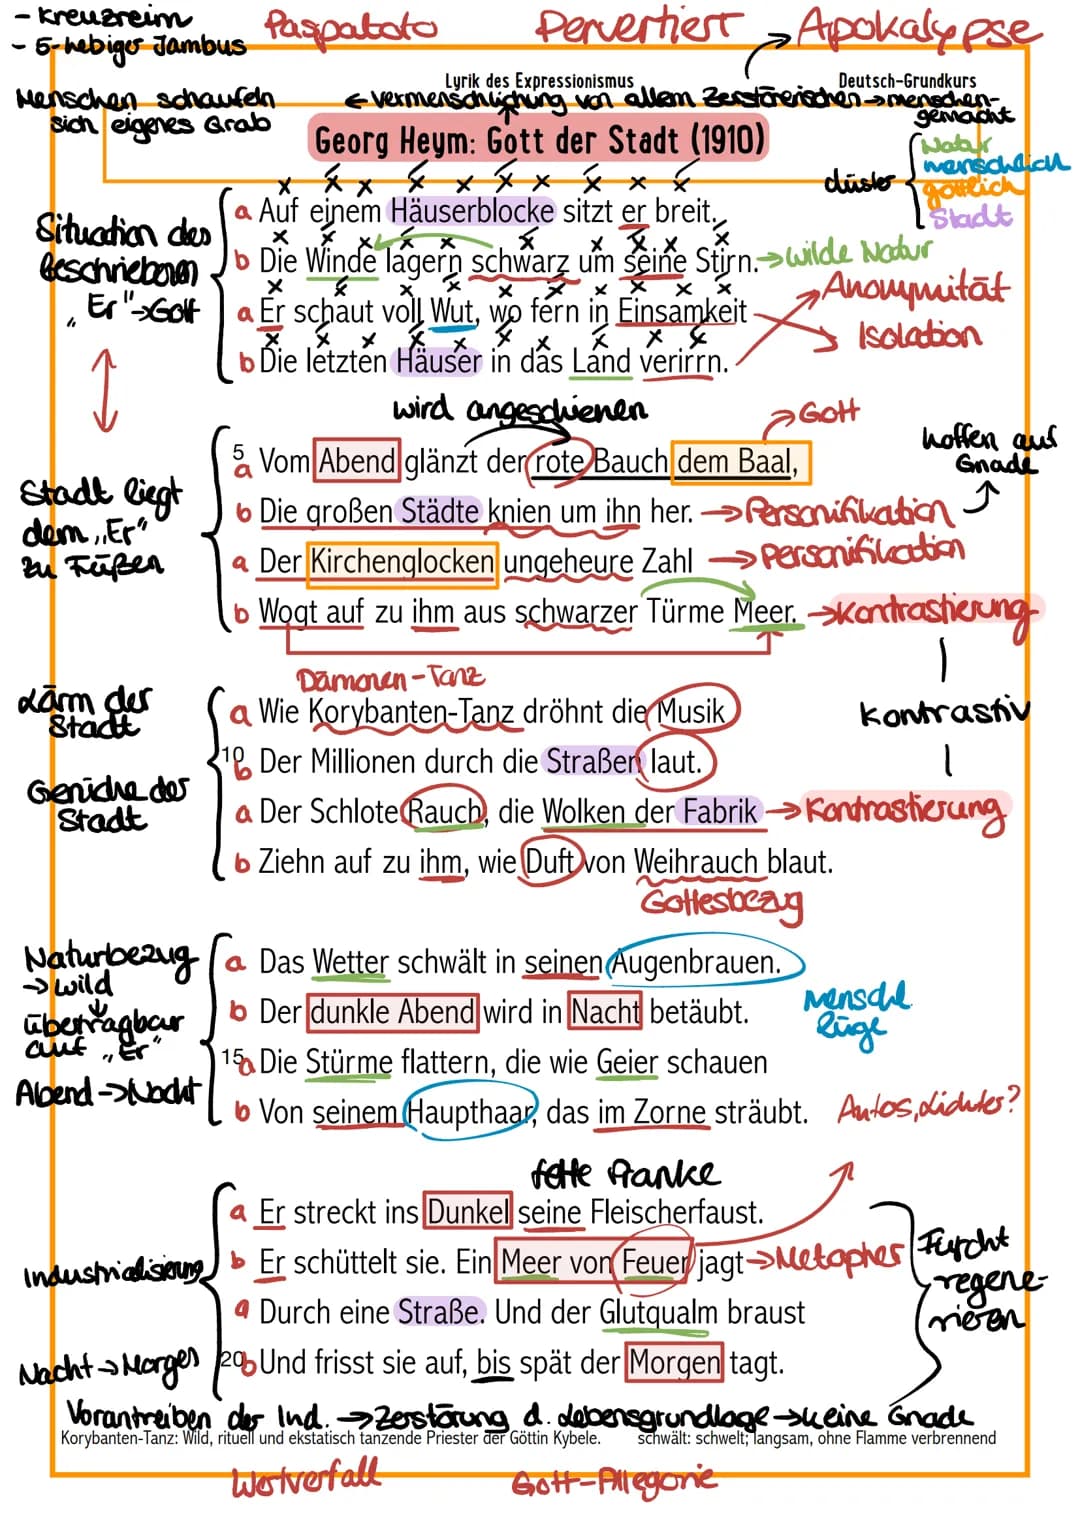 - Kreuzreim
- 5-hebiger Jambus
Paspatoto
Pervertiert
Apokalypse
Lyrik des Expressionismus
Deutsch-Grundkurs
Menschen schaufeln
sich eigenes Grab
← Vermenschlichung von allem Zerstörerischen → menschen-
gemacht
Georg Heym: Gott der Stadt (1910)
düster
Natur
menschlich
göttlich
Stadt
Situation des
Beschriebenen
„Er" → Gott
a Auf einem Häuserblocke sitzt er breit.
b Die Winde lagern schwarz um seine Stirn. → wilde Natur
a Er schaut voll Wut, wo fern in Einsamkeit
Anonymität
Isolation
b Die letzten Häuser in das Land verirrn.
wird angeschienen
Gott
hoffen auf
Gnade
Stadt liegt
dem „Er"
zu Füßen
5
a Vom Abend glänzt der rote Bauch dem Baal,
b Die großen Städte knien um ihn her. → Personifikation
a Der Kirchenglocken ungeheure Zahl → Personifikation
b Wogt auf zu ihm aus schwarzer Türme Meer. → Kontrastierung
Dämonen-Tanz
Lärm der
Stadt
Gerüche der
Stadt
a Wie Korybanten-Tanz dröhnt die Musik
Kontrastiv
10
b Der Millionen durch die Straßen laut.
a Der Schlote Rauch, die Wolken der Fabrik → Kontrastierung
b Ziehn auf zu ihm, wie Duft von Weihrauch blaut.
Gottesbezug
Naturbezug
→ wild
übertragbar
auf „Er"
Abend → Nacht
a Das Wetter schwält in seinen Augenbrauen.
b Der dunkle Abend wird in Nacht betäubt.
15
a Die Stürme flattern, die wie Geier schauen
b Von seinem Haupthaar, das im Zorne sträubt.
Autos, Lichter?
fette Pranke
Industrialisierung
Nacht → Morgen
a Er streckt ins Dunkel seine Fleischerfaust.
b Er schüttelt sie. Ein Meer von Feuer jagt → Metapher
a Durch eine Straße. Und der Glutqualm braust
20
b Und frisst sie auf, bis spät der Morgen tagt.
Furcht
regene-
rieren
Vorantreiben der Ind. → Zerstörung d. Lebensgrundlage → keine Gnade
Korybanten-Tanz: Wild, rituell und ekstatisch tanzende Priester der Göttin Kybele.
schwält: schwelt; langsam, ohne Flamme verbrennend
Wertverfall
Gott-Allegorie